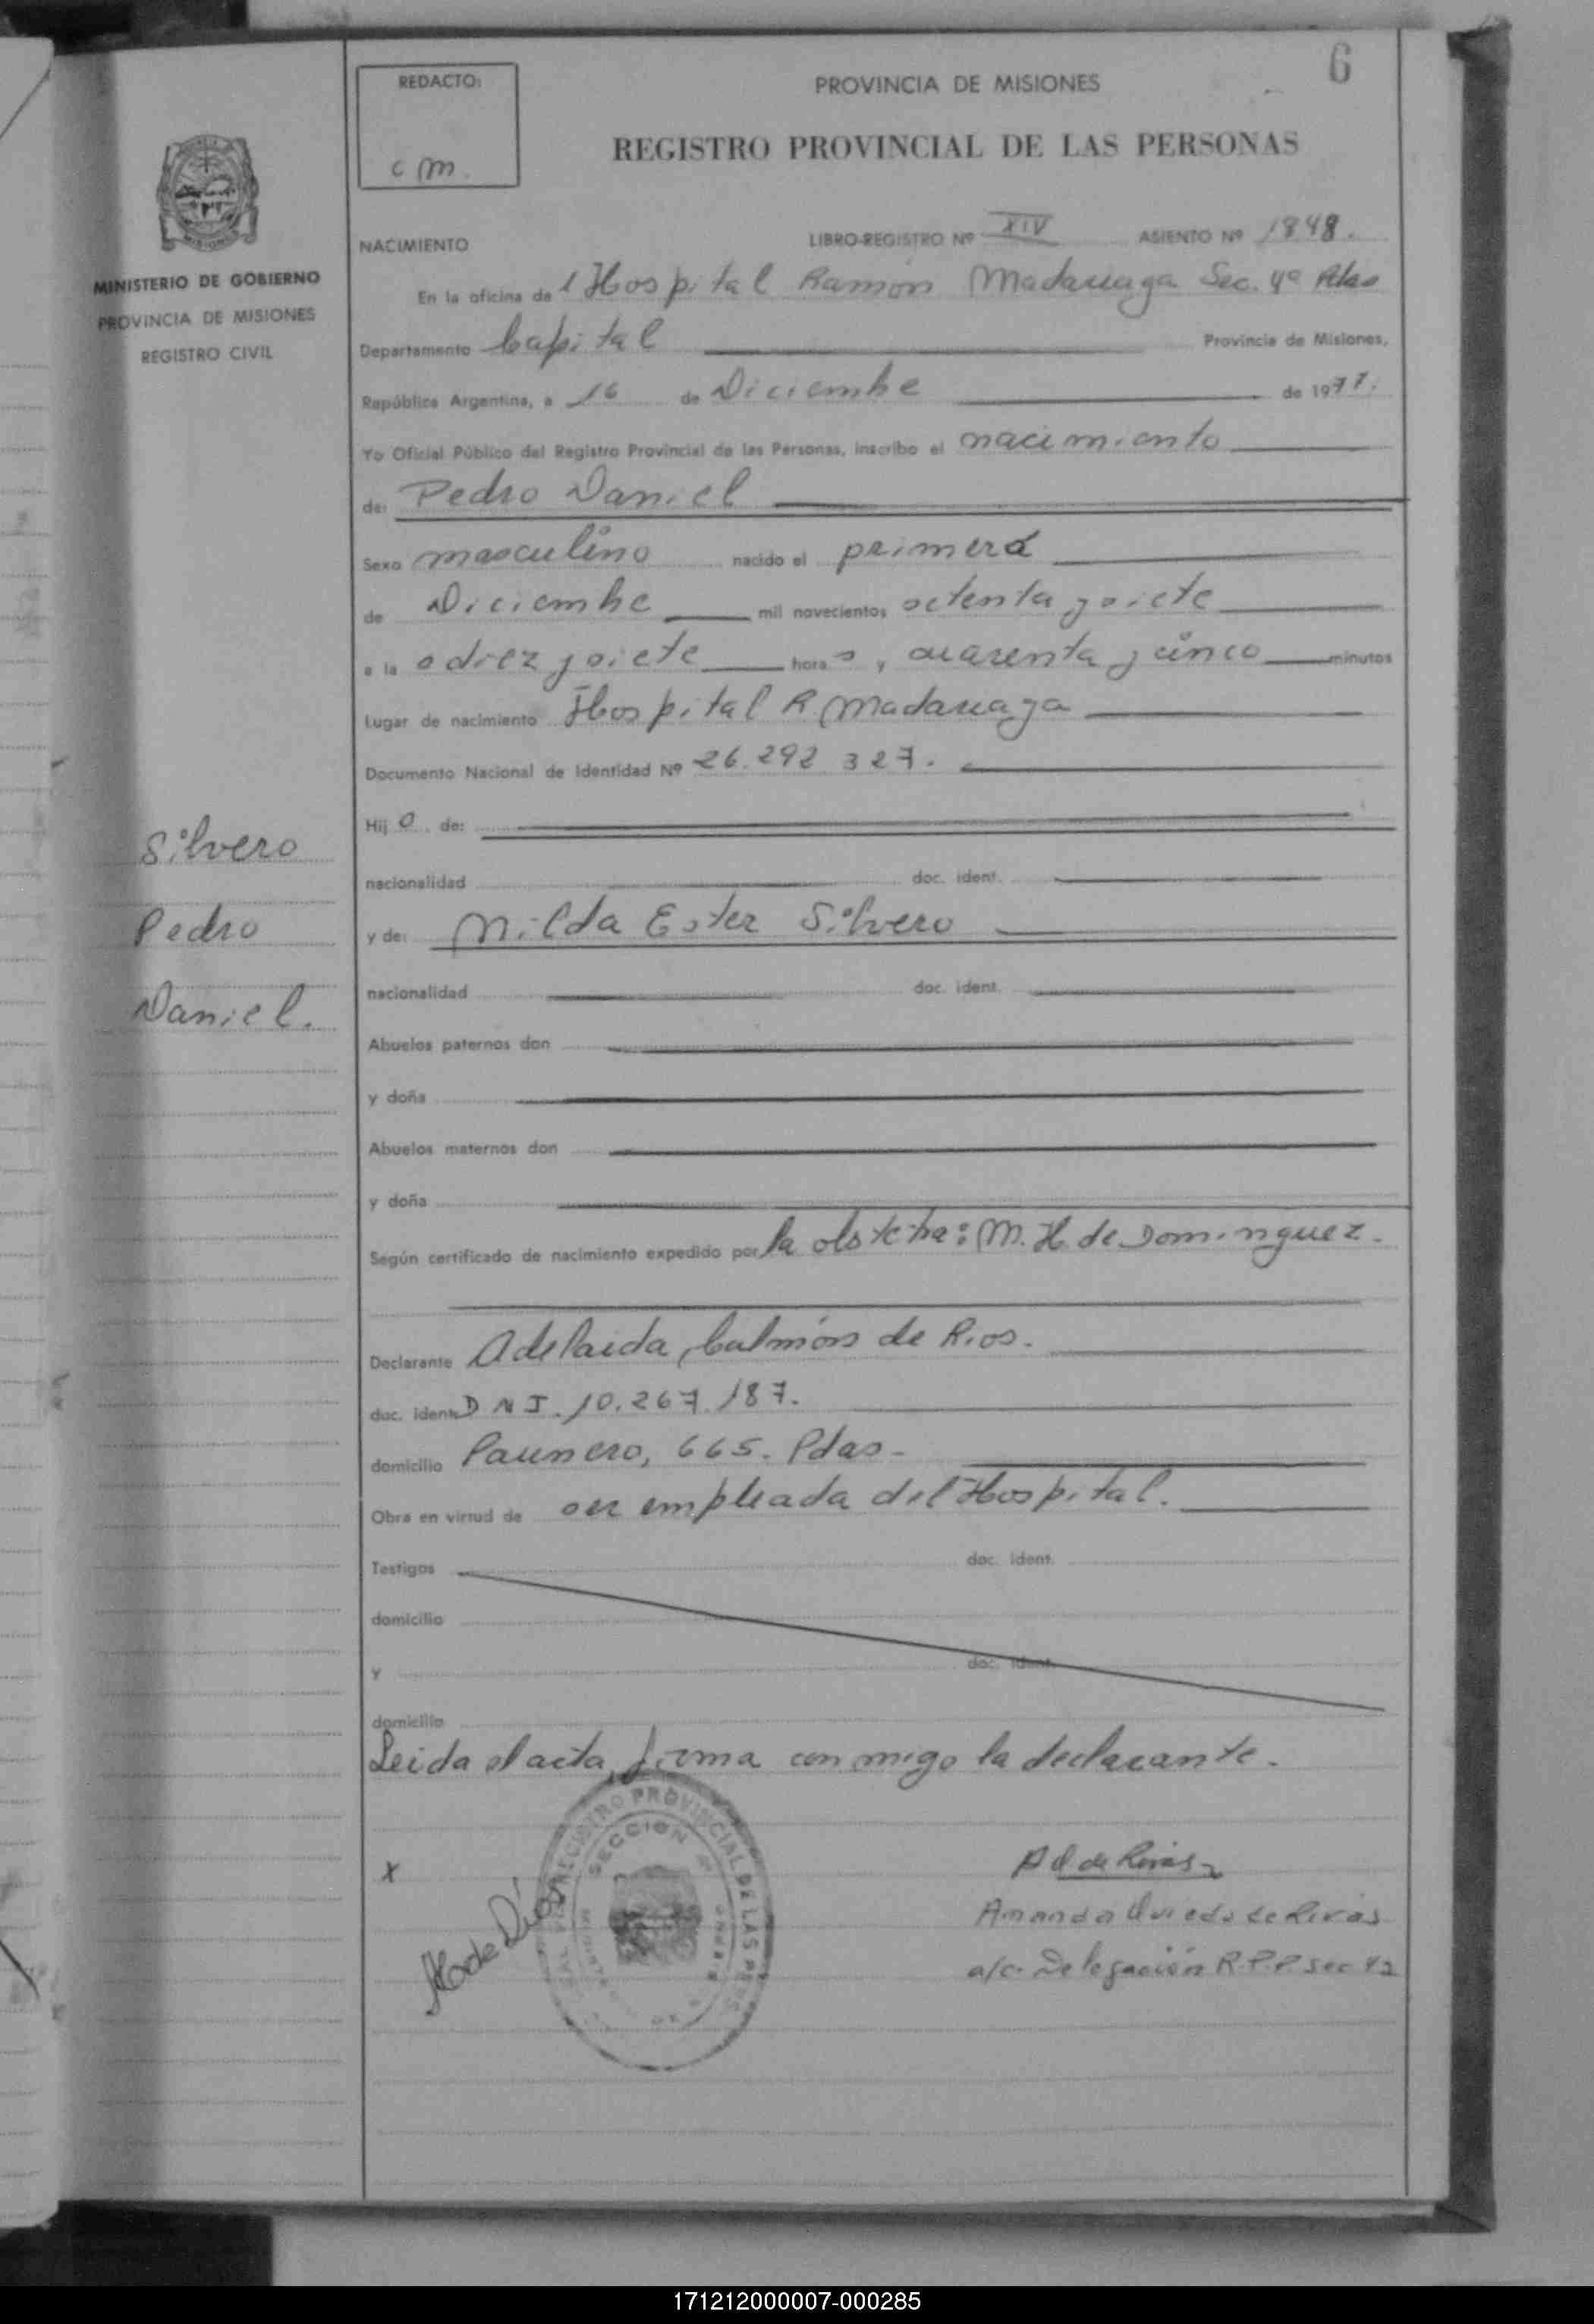 6
REDACTO:
c m.
PROVINCIA DE MISIONES
REGISTRO PROVINCIAL DE LAS PERSONAS
MINISTERIO DE GOBIERNO
PROVINCIA DE MISIONES
REGISTRO CIVIL
NACIMIENTO LIBRO-REGISTRO Nº XIV ASIENTO Nº 1848.
En la oficina de l Hospital Ramón Madariaga Sec. 4ª Pdas
Departamento Capital Provincia de Misiones,
República Argentina, a 16 de Diciembre de 1977.
Yo Oficial Público del Registro Provincial de las Personas, inscribo el nacimiento
de: Pedro Daniel
Sexo masculino nacido el primero
de Diciembre mil novecientos setenta y siete
a la s diez y siete hora s y cuarenta y cinco minutos
Lugar de nacimiento Hospital R. Madariaga
Documento Nacional de Identidad Nº 26.292.327.
Hij o de:
nacionalidad doc. ident.
y de: Nilda Ester Silvero
nacionalidad doc. ident.
Silvero
Pedro
Daniel.
Abuelos paternos don
y doña
Abuelos maternos don
y doña
Según certificado de nacimiento expedido por la obstetra: M. H. de Dominguez.
Declarante Adelaida de Rios.
doc. ident. D N I. 10.267.187.
domicilio Paunero, 665. Pdas-
Obra en virtud de ser empleada del Hospital.
Testigos doc. ident.
domicilio
y doc. ident.
domicilio
Leida el acta, firma conmigo la declarante.
REGISTRO PROVINCIAL DE LAS PERS
SECCION
x
A O de Rivas
Amanda Oviedo de Rivas
a/c. Delegación R.P.P. Sec 4ª
171212000007-000285